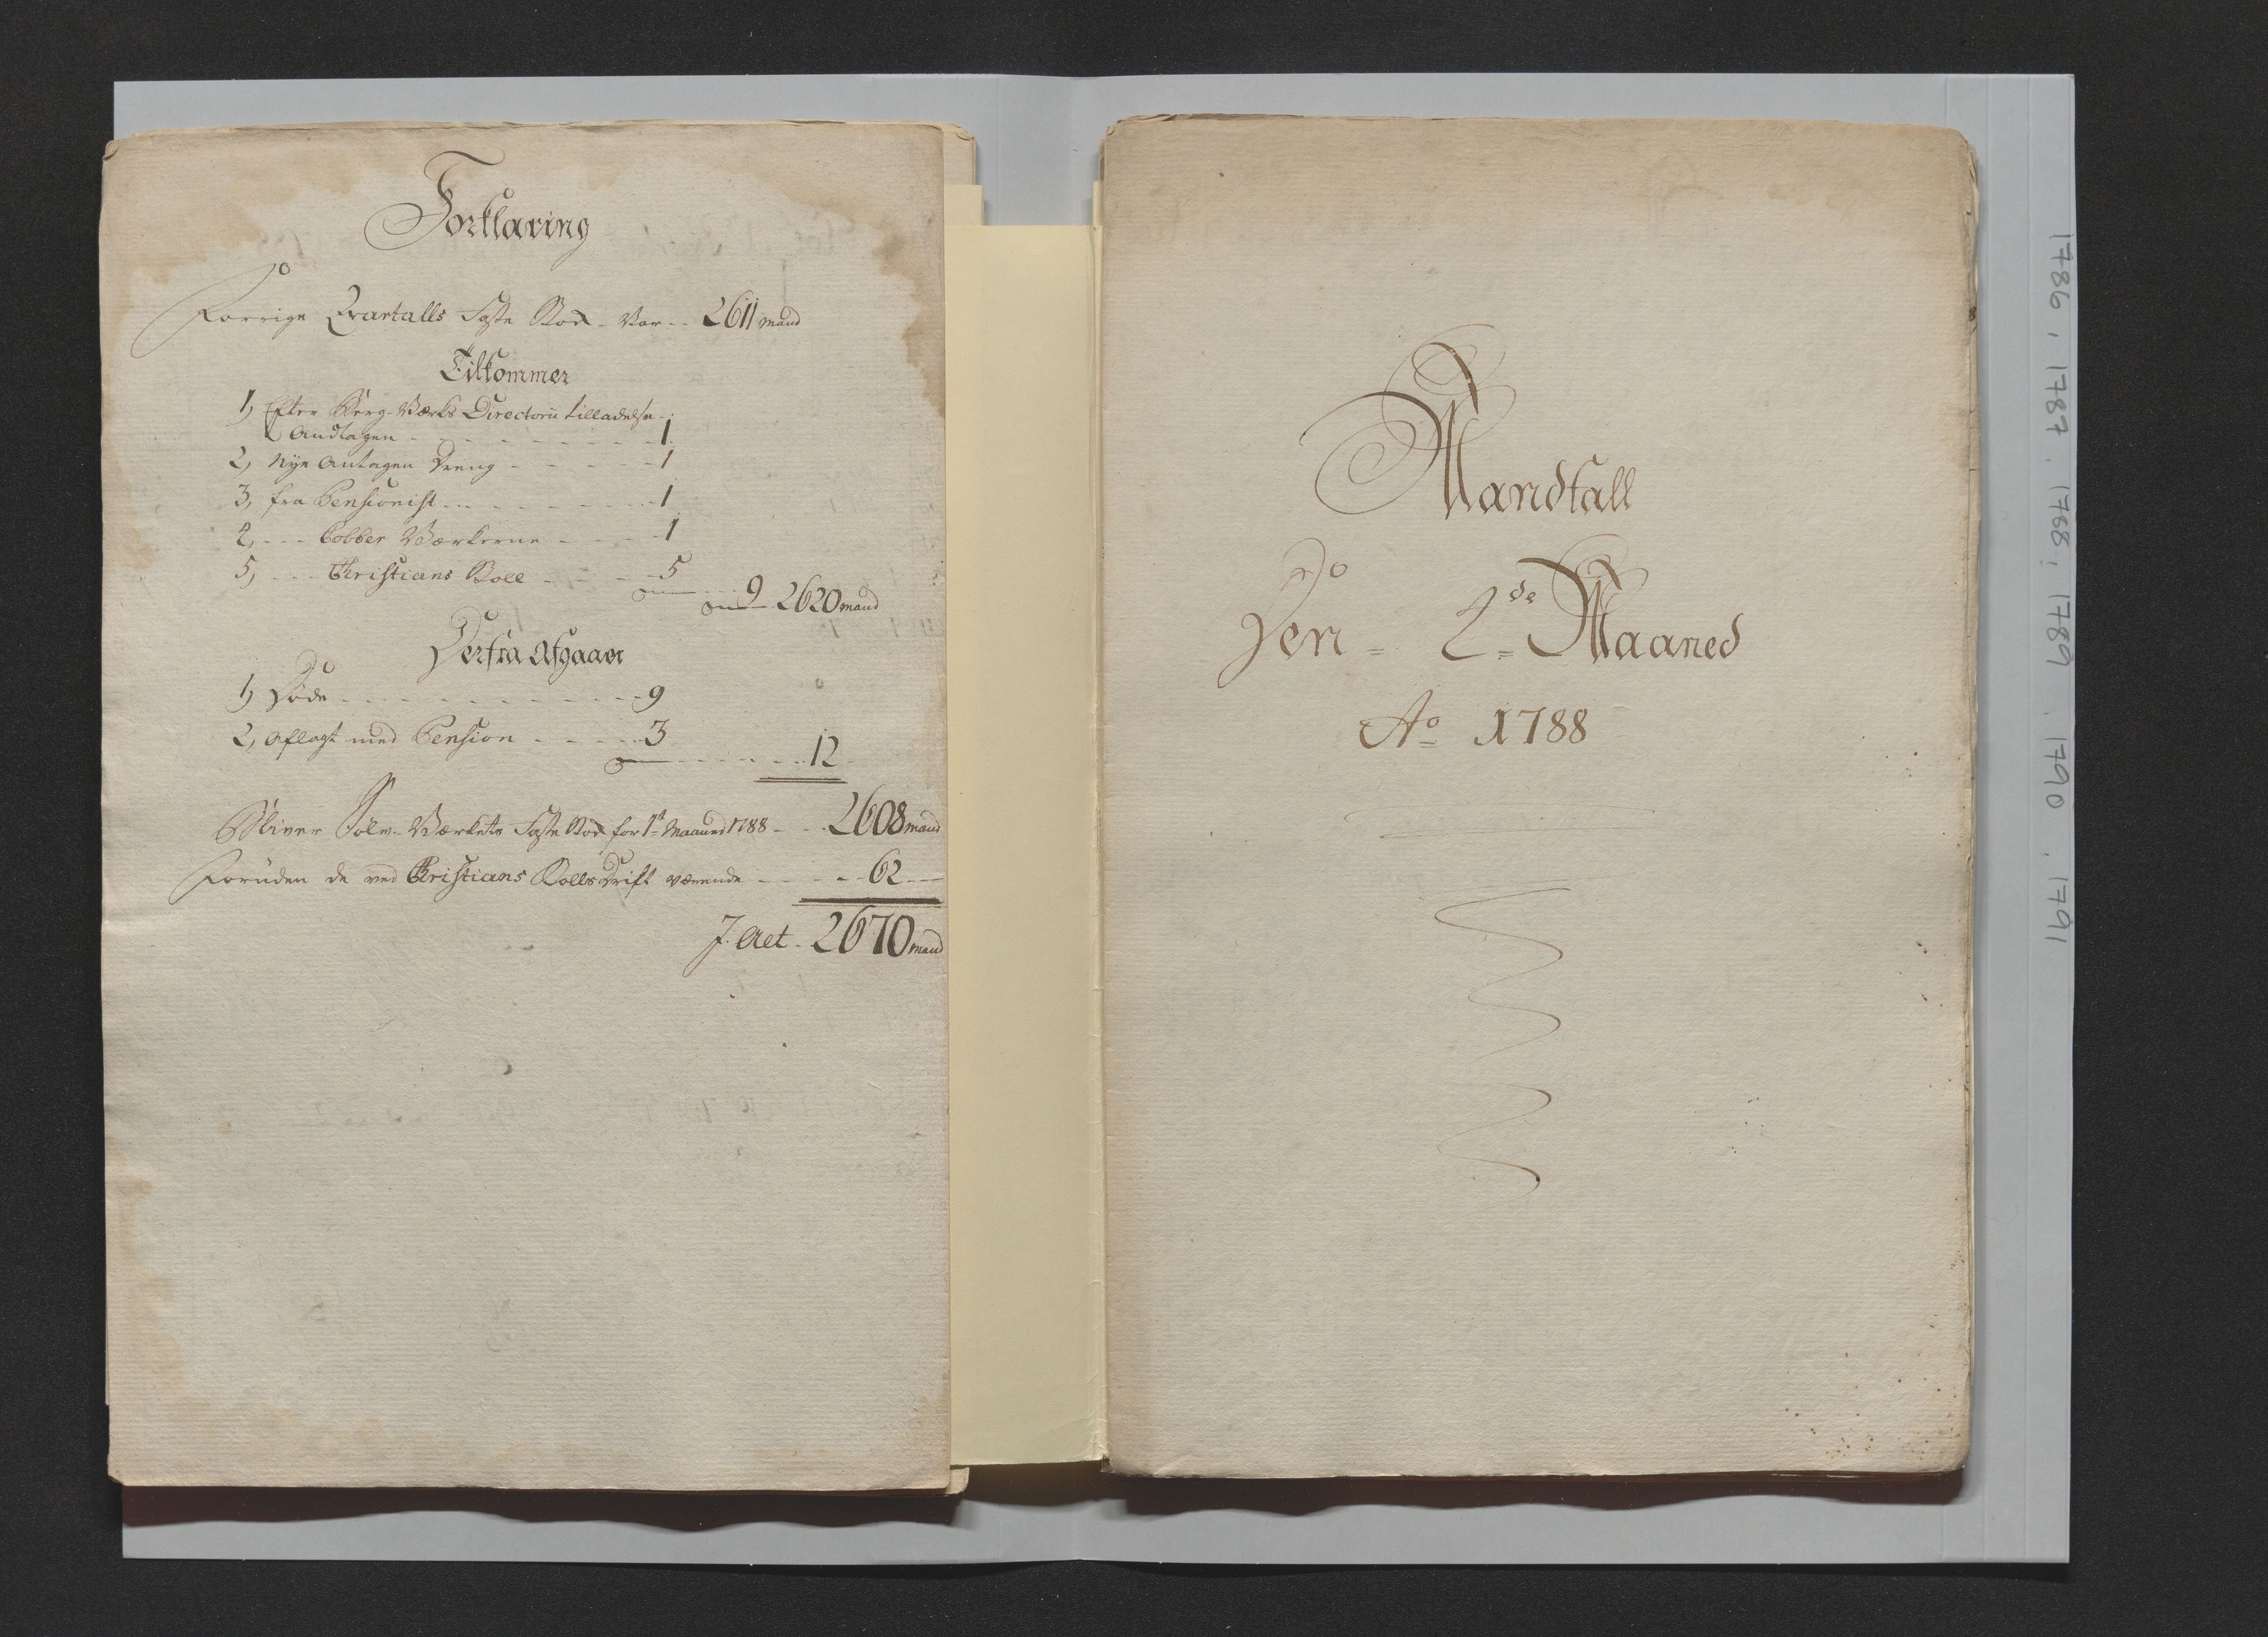 Forklaring
Forrige Qvartalls Faste Stok - Var - - 2611 mand
Tilkommer
1, Efter Berg-Værks Directorii tilladelse -
Andtagen - - - - - - - - 1
2, Nye Antagen Dreng - - - - - 1
3, fra Pensionist - - - - - - - - 1
4, - - - Cobber Værkerne - - - - 1
5, - - - Christians Stoll - - - - 5
9 2620 mand
Derfra Afgaaer
1, Døde - - - - - - - - - - - 9
2, Aflagt med Pension - - - - - 3
12
Bliver Sølv-Værkets Faste Stok for 1st Maaned 1788 - - 2608 mand
Foruden de ved Christians Stolls Drift værende - - - - - 62 - -
J. Alt - 2670 mand
Mandtall
Den = 2de = Maaned
Ao 1788
1786, 1787. 1788, 1789. 1790. 1791